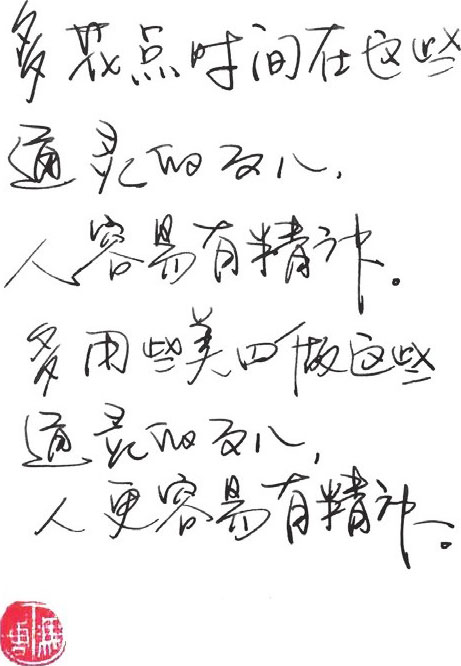 多花点时间在这些
通灵的儿,
人容易有精神。
多用些美做这些
通灵的儿,
人更容易有精神。